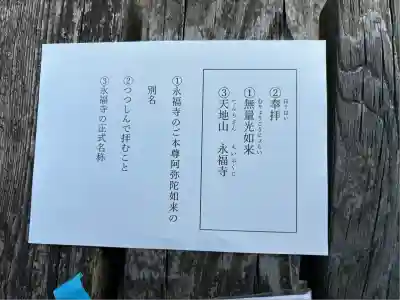 ②奉拝
ほうはい
①無量光如来
むりょうこうにょらい
③天地山 永福寺
てんちざん えいふくじ
①永福寺のご本尊阿弥陀如来の
別名
②つつしんで拝むこと
③永福寺の正式名称